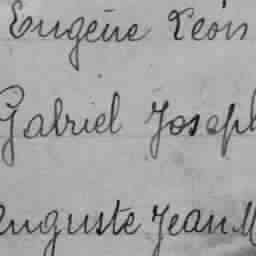 Eugène Léon
Gabriel Joseph
Auguste Jean M